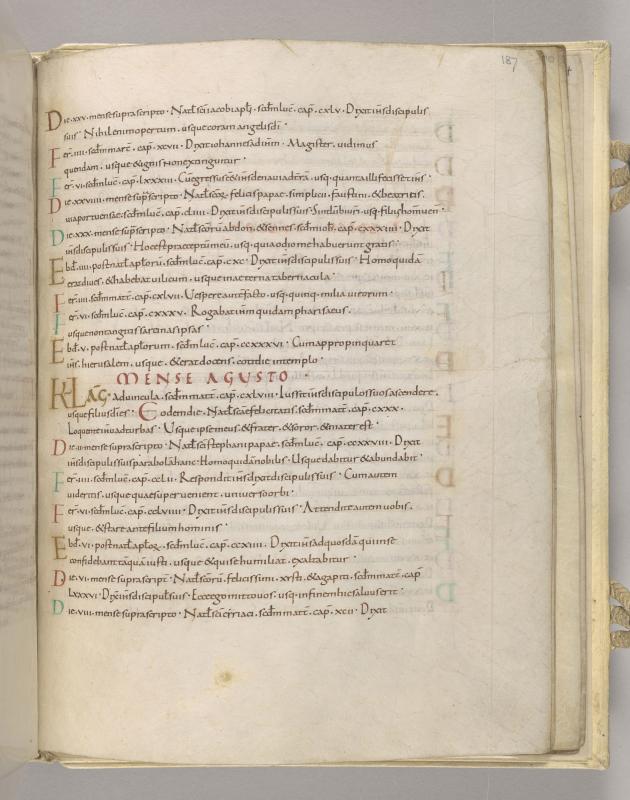 187
Die·xxv·mense suprascripto· Natł scī iacobi apłi· sec̄d luc̄· cap̄· cxlv· Dixit ihs discipulis
suis· Nihil enim opertum· usque coram angelis dī·
Fer̄·iiii· sec̄d marc̄· cap̄· xcvii· Dixit iohannes ad ihm· Magister, vidimus
quendam· usque & ignis non extinguitur·
Fer̄·vi· sec̄d luc̄· cap̄· lxxxiii· Cū egressus e&ihs de naui ad t̄rā· usq· quanta illi fecisset ihs·
Die·xxviiii· mense sup̄scripto· Natł scōꝝ· felicis papae· simplicii· faustini· & beatricis·
uia portuense· sec̄d luc̄· cap̄· cliiii· Dixit ihs discipulis suis· Sint lūbi ur̄i· usq· filius hom̄ uen̄·
Die·xxx· mense sup̄scripto· Natł scōrū abdon· & sennes· sec̄d ioh̄· cap̄· cxxxviiii· Dixit
ihs discipulis suis· Hoc est praeceptū meū· usq· quia odio me habuerunt gratis·
Ebd̄·iiii· post natł apłorū· sec̄d luc̄· cap̄· cxc· Dixit ihs discipulis suis· Homo quidā
erat diues· & habebat uilicum· usque in aeterna tabernacula·
Fer̄·iiii· sec̄d matt̄· cap̄· cxlvii· Uespere aut̄ facto· usq· quinq· milia uirorum·
Fer̄·vi· sec̄d luc̄· cap̄· cxxxv· Rogabat ihm quidam pharisaeus·
usque non tangitis sarcinas ipsas·
Ebd̄·v· post natł apłorum· sec̄d luc̄· cap̄· ccxxxvi· Cum appropinquaret
ihs· hierusalem· usque· & erat docens· cotidie in templo·
MENSE AGUSTO
KLAG̅· ad uincula· sec̄d matt̄· cap̄· cxlviii· Iussit ihs discipulos suos ascendere·
usque filius dī es· Eodem die· Natł scāe felicitatis· sec̄d matt̄· cap̄· cxxx·
Loquente ihu ad turbas· Usque ipse meus & frater· & soror· & mater est·
Die·ii· mense suprascripto· Natł scī stephani papae· sec̄d luc̄· cap̄· ccxxviii· Dixit
ihs discipulis suis parabolā hanc· Homo quidā nobilis· Usque dabitur & abundabit·
Fer̄·iiii· sec̄d luc̄· cap̄· cclii· Respondit ihs dixit discipulis suis· Cum autem
uideritis· usque quae superuenient· uniuerso orbi·
Fer̄·vi· sec̄d luc̄· cap̄· cclviiii· Dixit ihs discipulis suis· Attendite autem uobis·
usque· & stare ante filium hominis·
Ebd̄·vi· post natł apłoꝝ· sec̄d luc̄· cap̄· ccxiiii· Dixit ihs ad quosdā qui in se
confidebant tāquā iusti· usque & qui se humiliat· exaltabitur·
Die·vi· mense suprascript̄· Natł scōrū· felicissimi· xysti· & agapiti· sec̄d matt̄· cap̄
lxxxvi· Dix̄ ihs discipulis suis· Ecce ego mitto uos· usq· in finem hic saluus erit·
Die·viii· mense suprascripto· Natł scī cyriaci· sec̄d matt̄· cap̄· xcii· Dixit